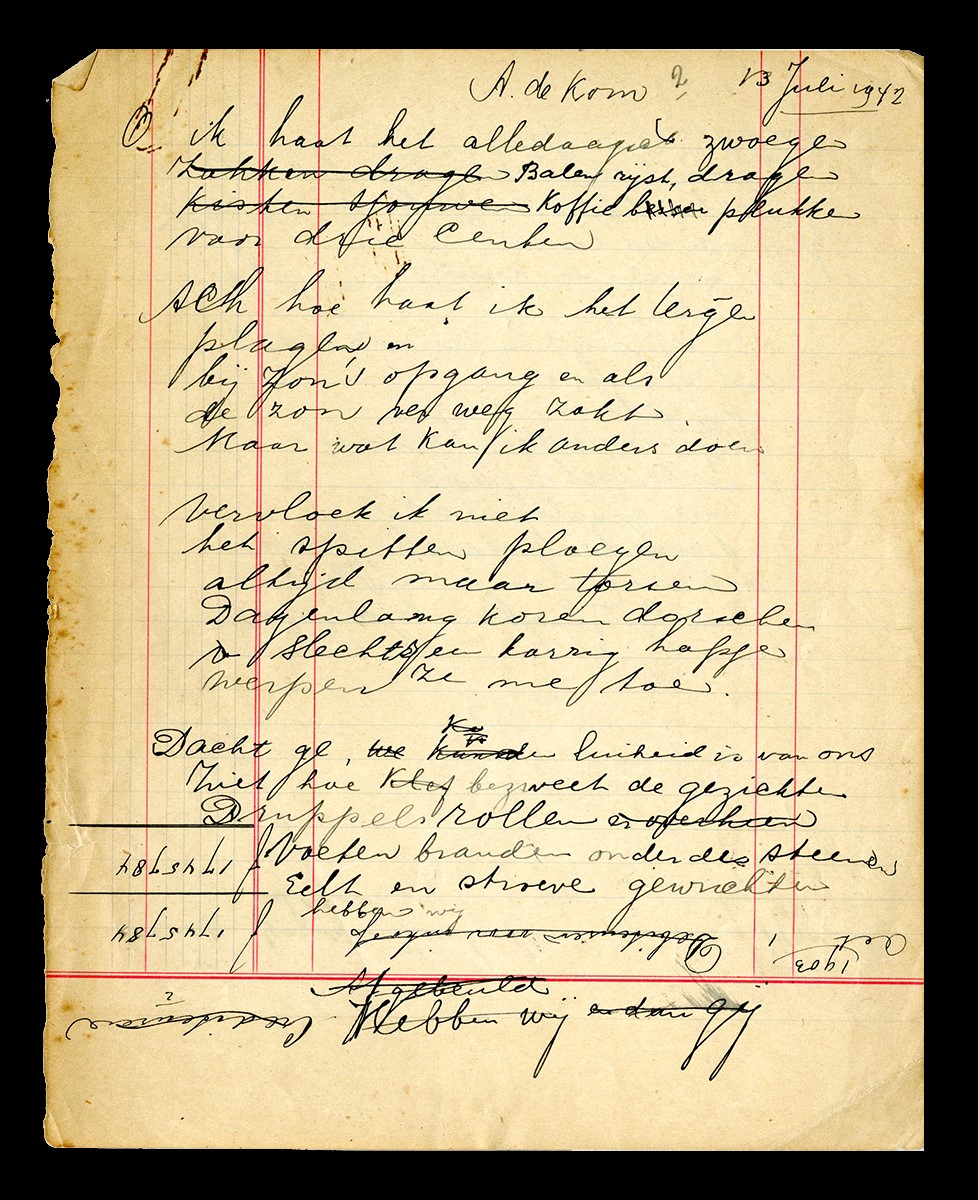 A. de Kom 2 13 Juli 1942
3 ik haat het alledaagse zwoegen
Zakken dragen Balen rijst, dragen
Kisten sjouwen Koffie plukken
voor drie Centen
Ach hoe haat ik het
plagen en
bij zon's opgang en als
de zon ver weg zakt
Maar wat kan ik anders doen
Vervloek ik niet
het spitten ploegen
altijd maar torsen
Dagenlang koren dorschen
Slechts een karrig hapje
werpen ze me toe.
Dacht ge, luiheid is van ons
Ziet hoe bezweet de gezichten
Druppels rollen
Voeten branden onder de steenen
f 1745784
Eelt en stroeve gewrichten
hebben wij
f 1745784
1903
Afgebeuld
Hebben wij en dan gij
Crediteuren 2